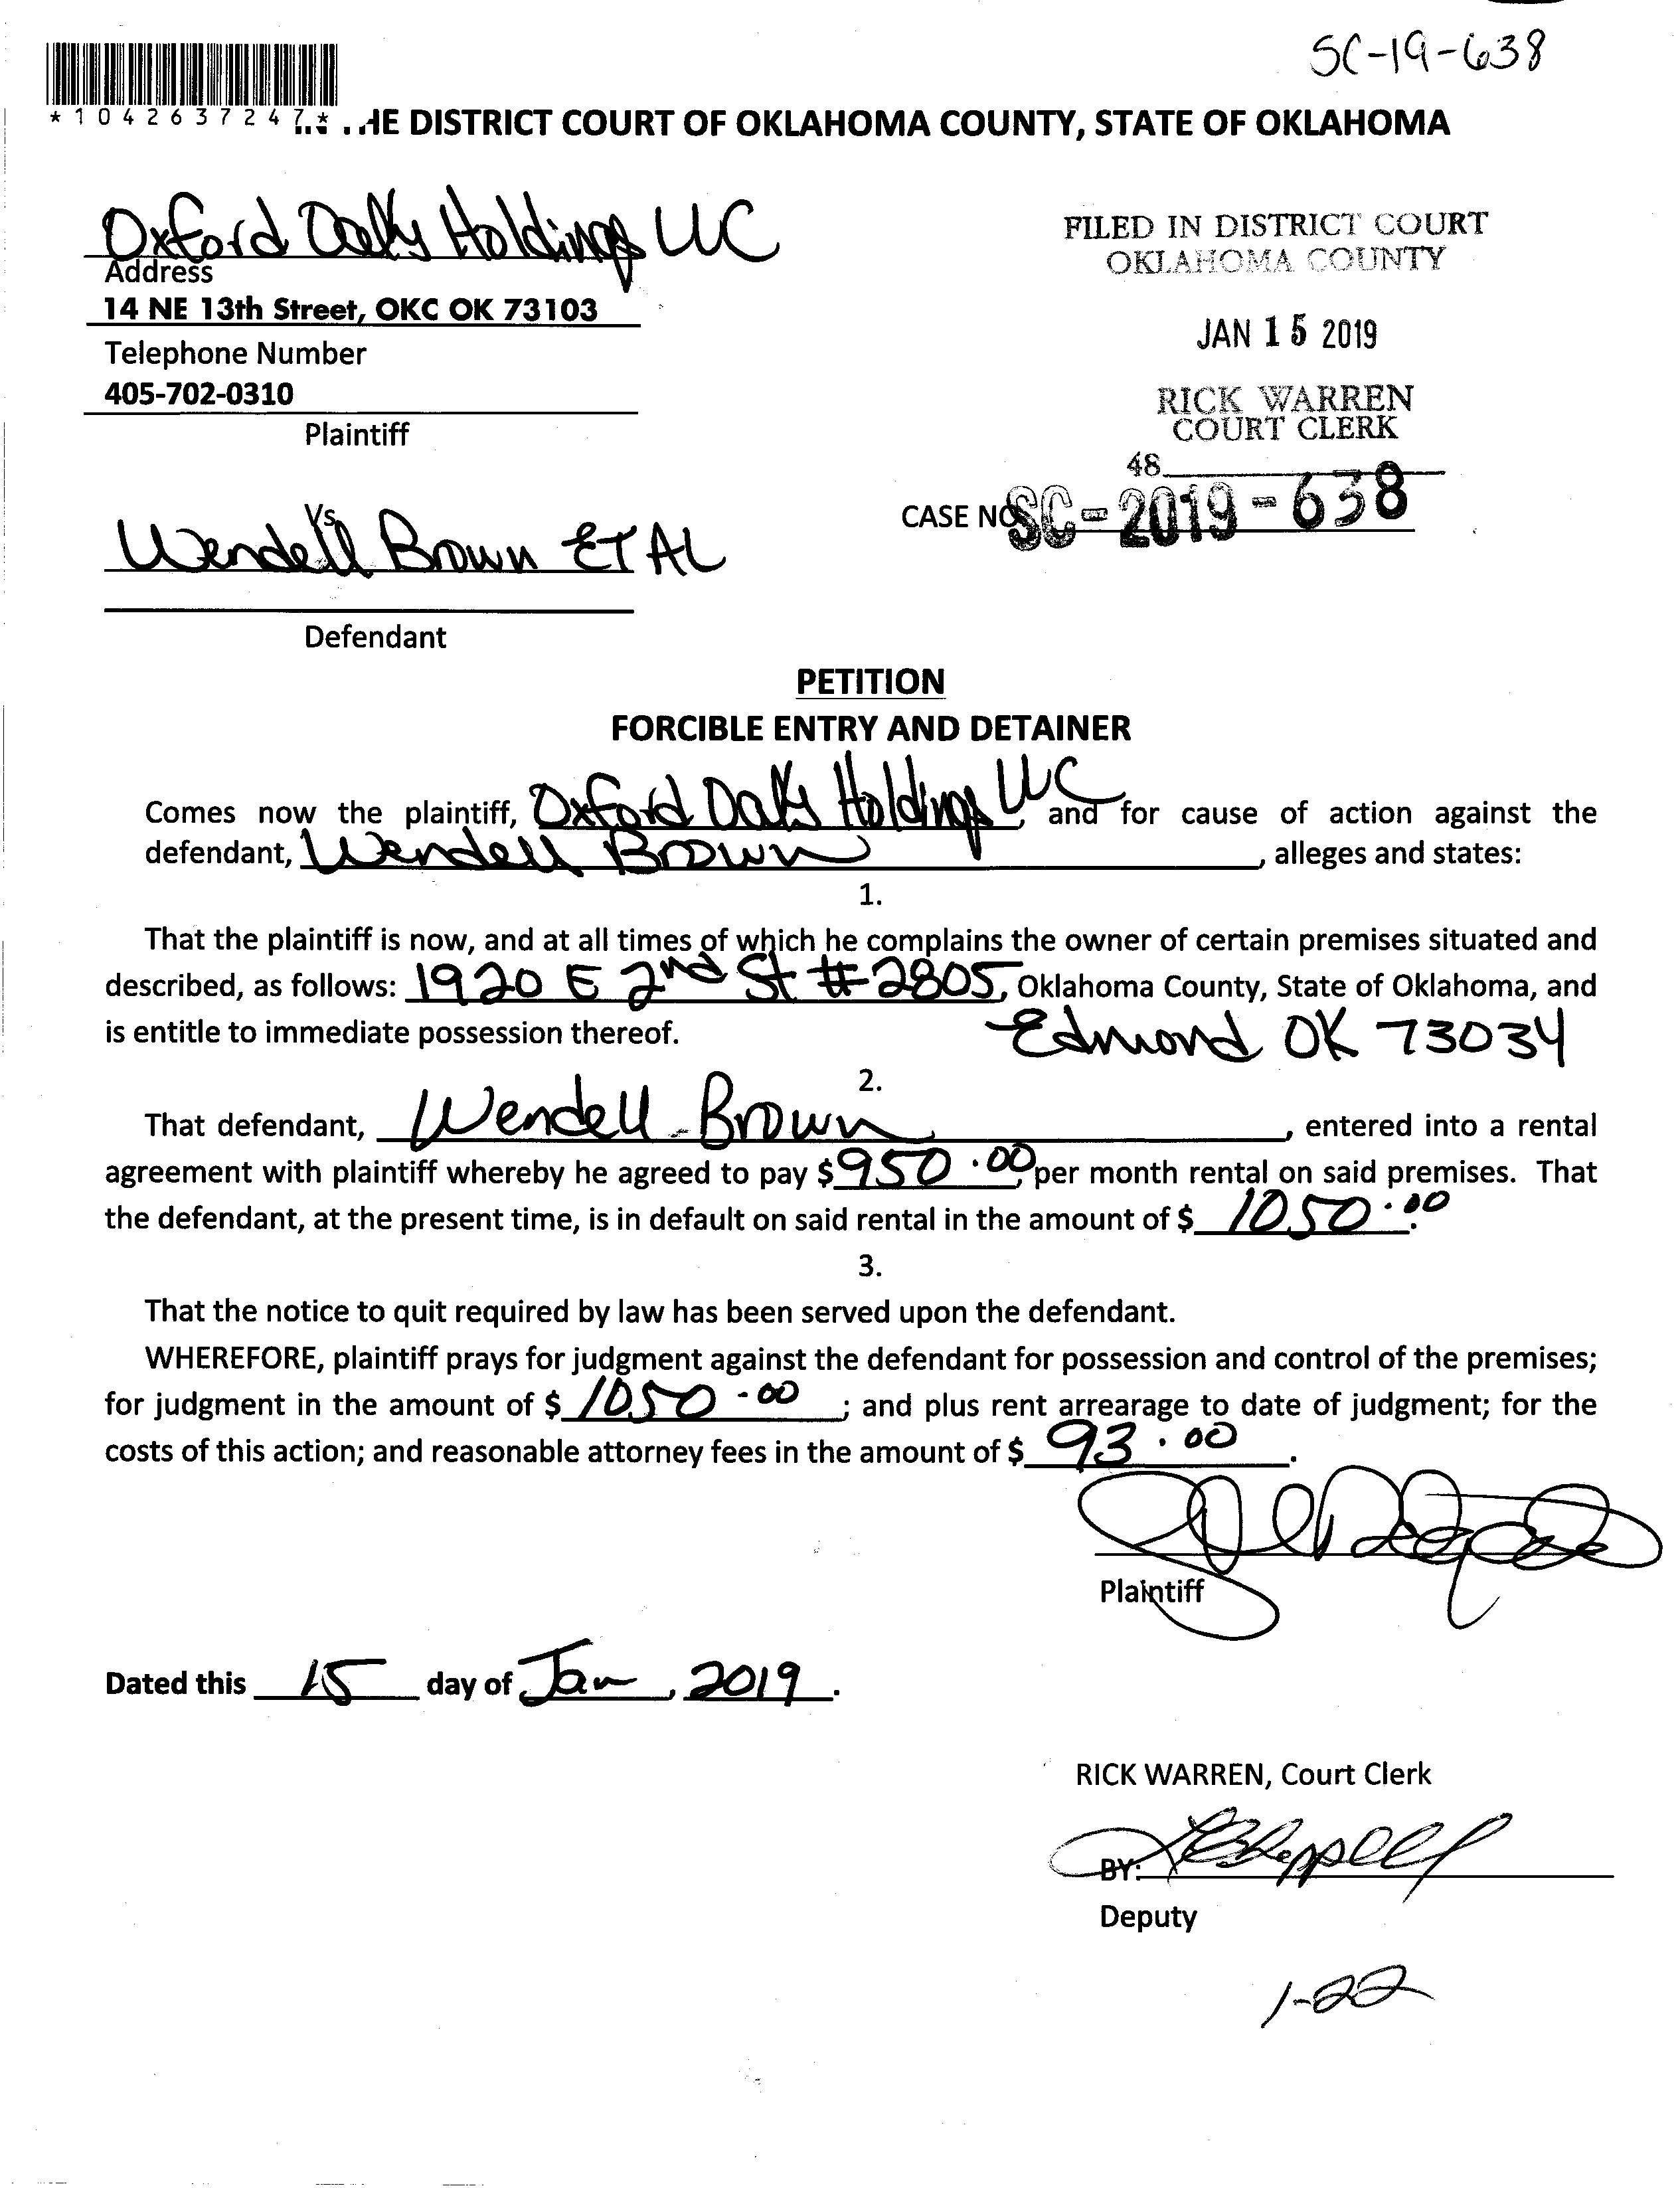 SC-19-638
*1042637247*
HE DISTRICT COURT OF OKLAHOMA COUNTY, STATE OF OKLAHOMA
Oxford Oaks Holdings LLC
Address
14 NE 13th Street, OKC OK 73103
Telephone Number
405-702-0310
Plaintiff
FILED IN DISTRICT COURT
OKLAHOMA COUNTY
JAN 15 2019
RICK WARREN
COURT CLERK
48
CASE NO SC-2019-638
Vs
Wendell Brown ET AL
Defendant
PETITION
FORCIBLE ENTRY AND DETAINER
Comes now the plaintiff, Oxford Oaks Holdings LLC, and for cause of action against the
defendant, Wendell Brown, alleges and states:
1.
That the plaintiff is now, and at all times of which he complains the owner of certain premises situated and
described, as follows: 1920 E 2nd St #2805, Oklahoma County, State of Oklahoma, and
is entitle to immediate possession thereof. Edmond OK 73034
2.
That defendant, Wendell Brown, entered into a rental
agreement with plaintiff whereby he agreed to pay $950.00, per month rental on said premises. That
the defendant, at the present time, is in default on said rental in the amount of $ 1050.00.
3.
That the notice to quit required by law has been served upon the defendant.
WHEREFORE, plaintiff prays for judgment against the defendant for possession and control of the premises;
for judgment in the amount of $ 1050-00; and plus rent arrearage to date of judgment; for the
costs of this action; and reasonable attorney fees in the amount of $ 93.00.
Plaintiff
Dated this 15 day of Jan, 2019.
RICK WARREN, Court Clerk
BY:
Deputy
1-22